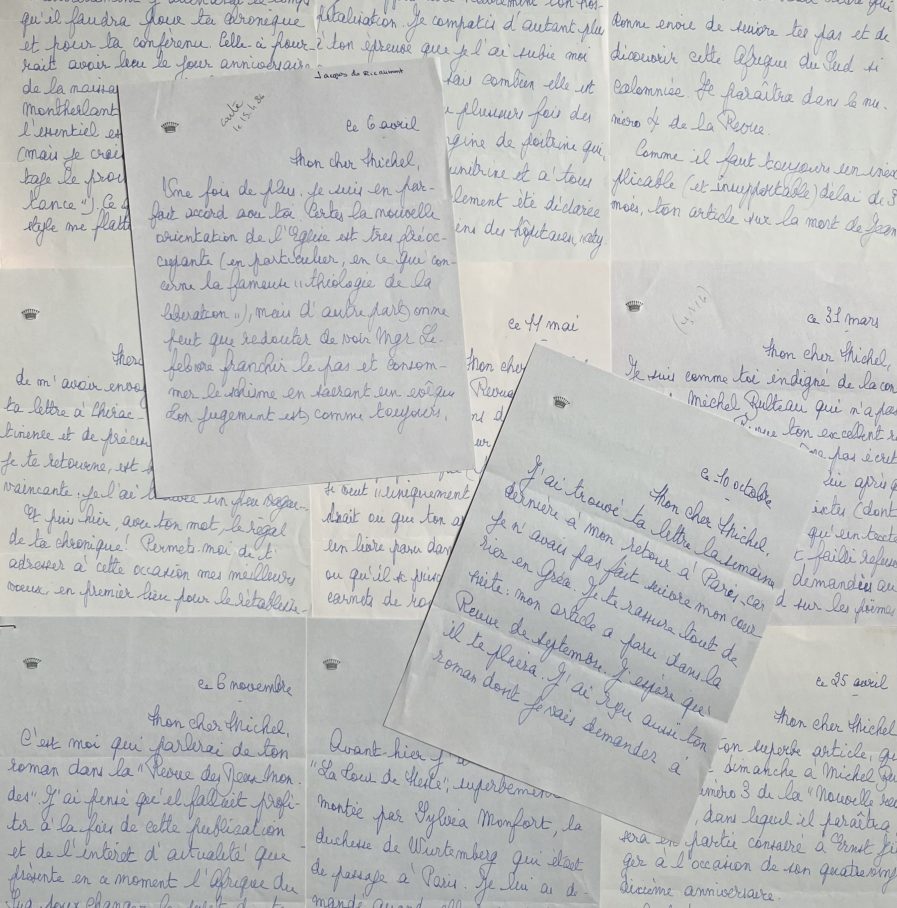 qu'il faudra pour ta chronique
et pour ta conférence. Elle
rait avoir lieu le jour anniversaire
de la naissa
Montherlant
l'essentiel es
(mais je crois
tage le prou
tance"). Ce
style me flatte
pitalisation. Je compatis d'autant plus
à ton épreuve que je l'ai subie moi
sais combien elle est
plusieurs fois des
gine de poitrine qui,
unitrine et à tous
lement été déclarée
ens des hôpitaux,
donne envie de suivre tes pas et de
découvrir cette Afrique du Sud si
calomniée. Il paraîtra dans le nu-
méro 4 de la Revue.
Comme il faut toujours un inex-
plicable (et insupportable) délai de 3
mois, ton article sur la mort de Jean
Jacques de Ricaumont
ce 6 avril
Mon cher Michel,
Une fois de plus, je suis en par-
fait accord avec toi. Certes la nouvelle
orientation de l'Église est très préoc-
cupante (en particulier, en ce que con-
cerne la fameuse "théologie de la
libération"), mais d'autre part, on ne
peut que redouter de voir Mgr Le-
febvre franchir le pas et consom-
mer le schisme en sacrant un évêque
Son jugement est, comme toujours,
de m'avoir envoy
ta lettre à Chirac
tinence et de précis
Je te retourne, est
vaincante. Je l'ai un peu
Et puis hier, avec ton mot, le régal
de ta chronique! Permets-moi de t'
adresser à cette occasion mes meilleurs
voeux, en premier lieu pour le rétablisse-
ce 11 mai
Mon cher
Revue
si veut "uniquement
un livre paru dans
ou qu'il se puis
carnets de
ce 31 mars
(4.5.16)
Mon cher Michel,
Je suis comme toi indigné de la con
Michel Bulteau qui n'a pas
ton excellent
pas écrit
après
(dont
qu'un texte
failli refuser
demandées au
sur les poèmes
ce 10 octobre
Mon cher Michel,
J'ai trouvé ta lettre la semaine
dernière à mon retour à Paris, car
je n'avais pas fait suivre mon cour-
rier en Grèce. Je te rassure tout de
suite: mon article a paru dans la
Revue de septembre. J'espère qu'
il te plaira. J'ai reçu aussi ton
roman dont je vais demander à
ce 6 novembre
Mon cher Michel,
C'est moi qui parlerai de ton
roman dans la "Revue des Deux Mon-
des". J'ai pensé qu'il fallait profi-
ter à la fois de cette publication
et de l'intérêt d'actualité que
présente en ce moment l'Afrique du
Avant-hier
"La Tour de Nesle", superbement
montée par Sylvia Monfort, la
duchesse de Wurtemberg qui était
de passage à Paris. Je lui ai de-
mandé quand elle
ce 25 avril
Mon cher Michel
ton superbe article, qu
dimanche à Michel Bul
numéro 3 de la "Nouvelle
dans lequel il paraîtra
sera en partie consacré à Ernst Jün
ger à l'occasion de son quatre-vingt
dixième anniversaire.